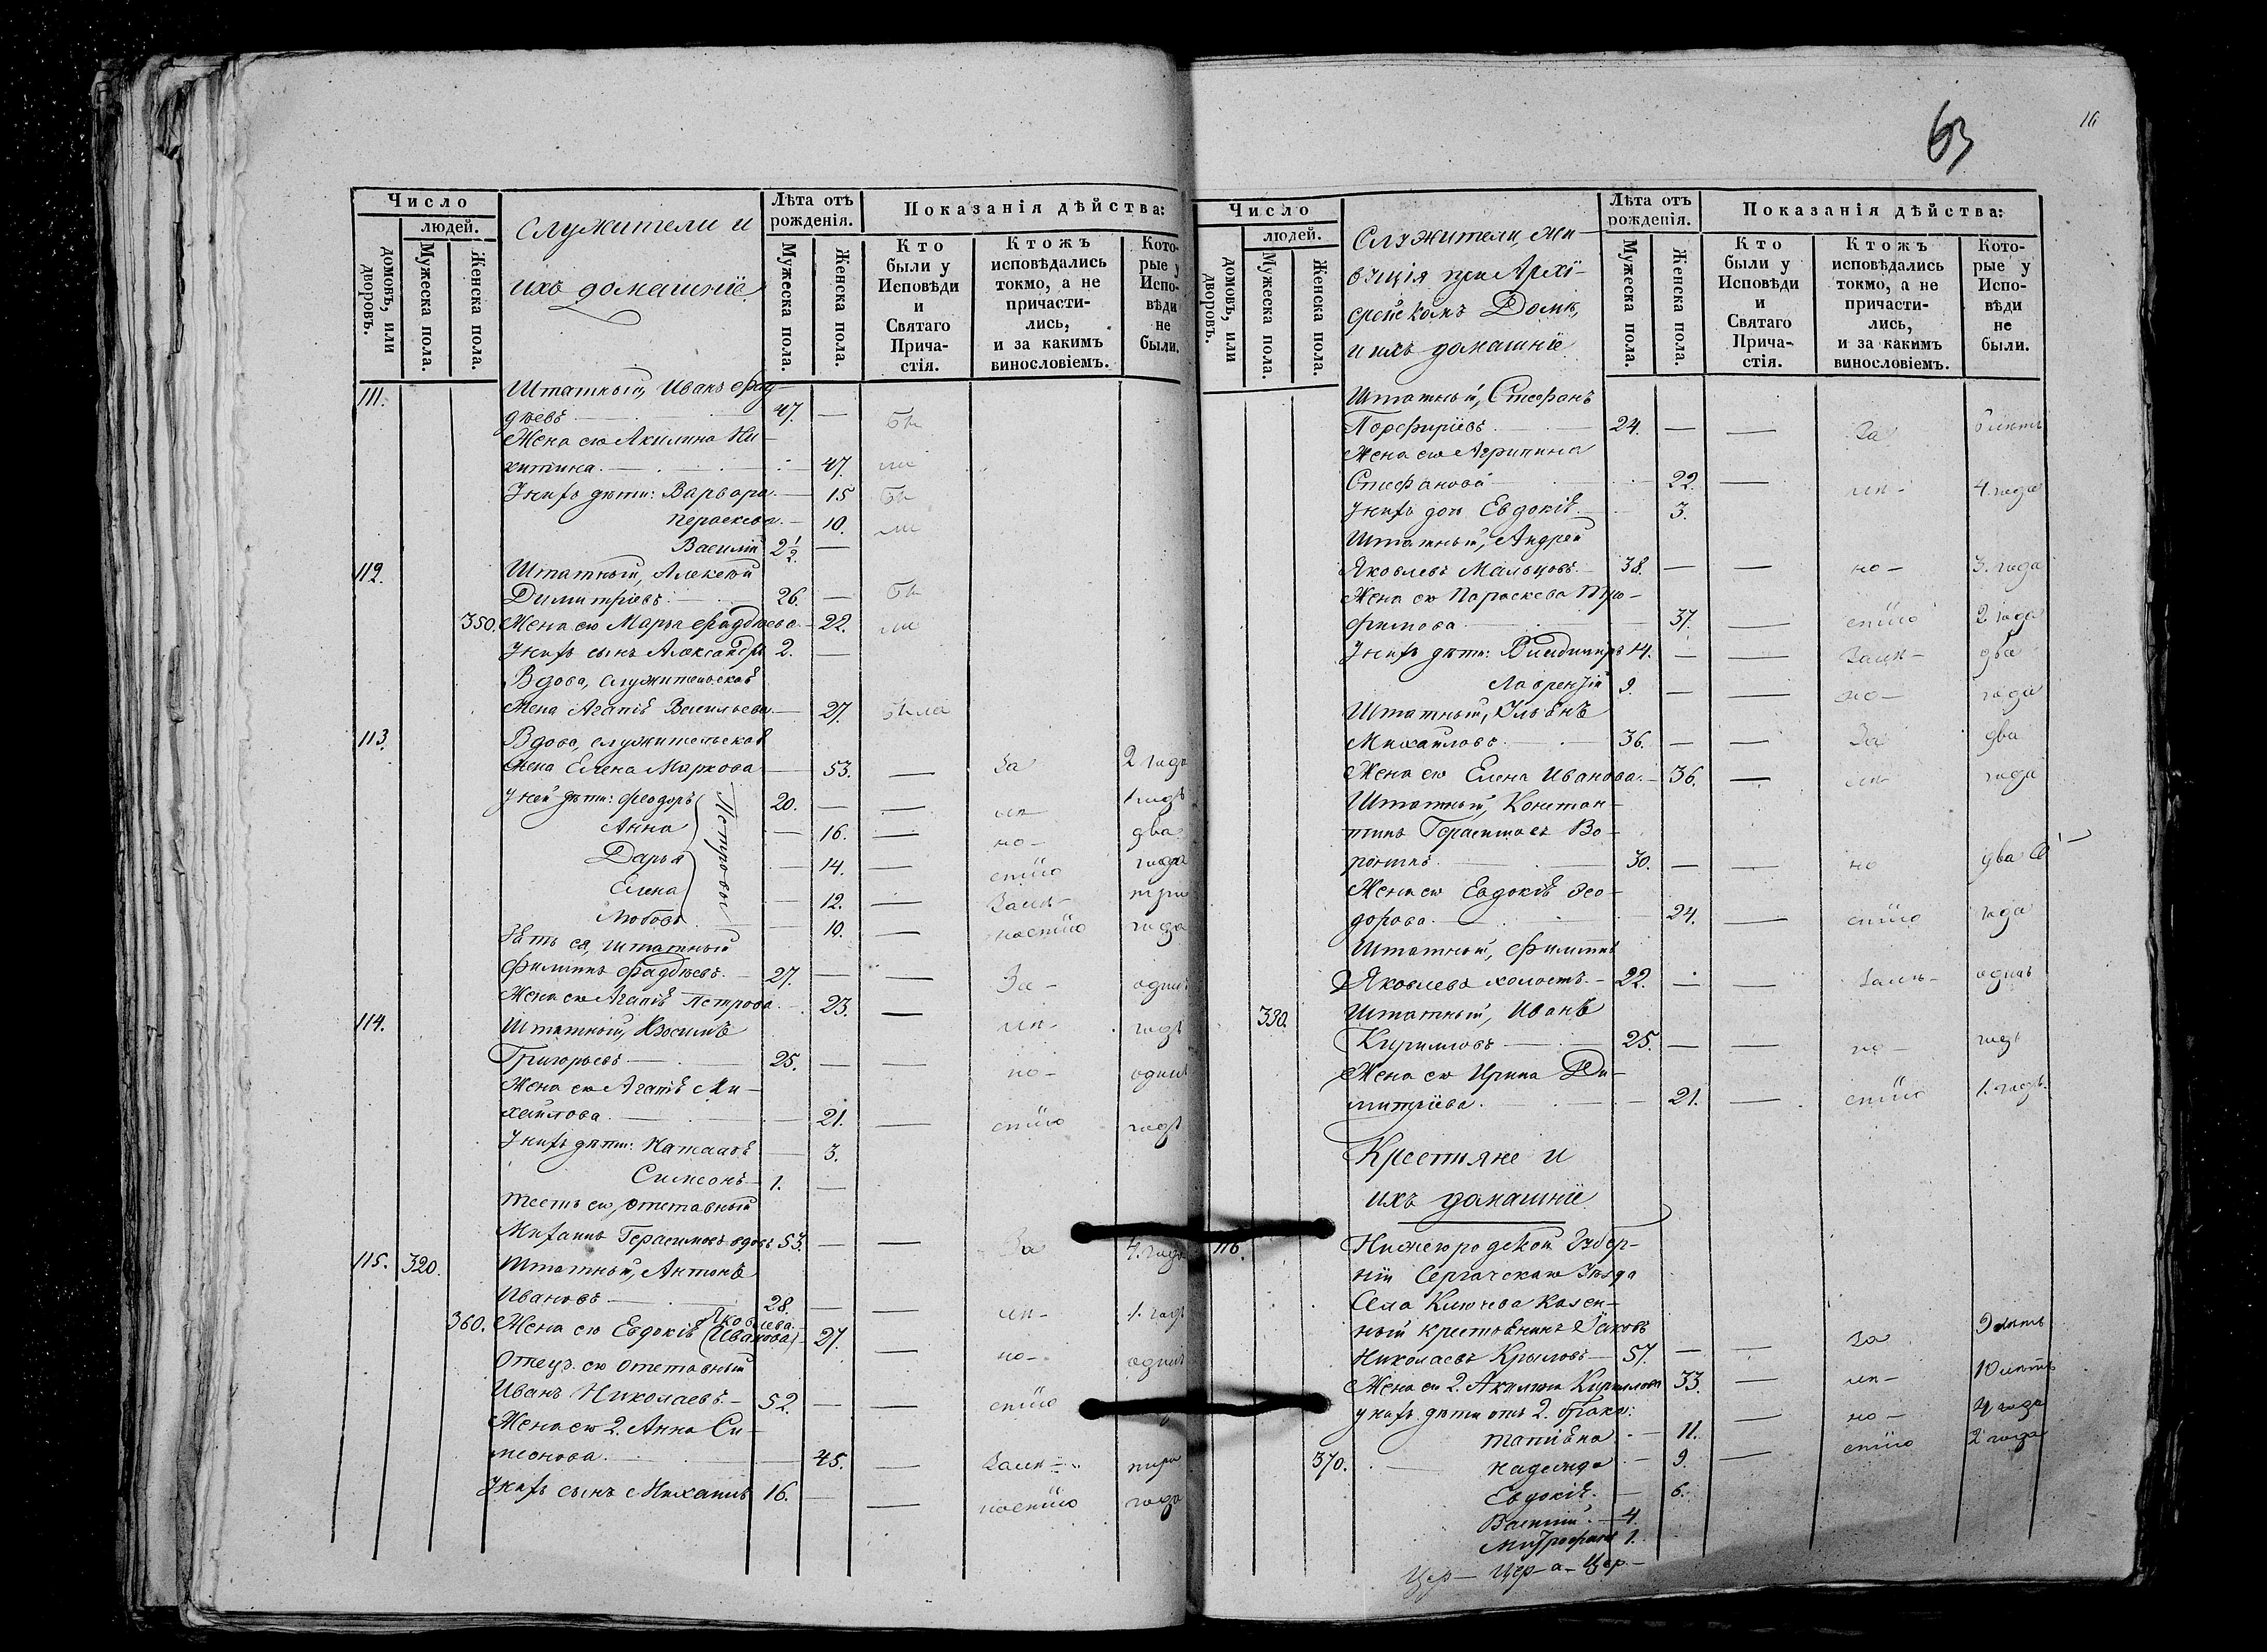 Число
людей.
домовъ, или дворовъ.
Мужеска пола.
Женска пола.
Служители и
ихъ домашніе
Лѣта отъ рожденія.
Мужеска пола.
Женска пола.
Показанія дѣйства:
Кто были у Исповѣди и Святаго Прича- стія.
Ктожъ исповѣдались токмо, а не причасти- лись, и за какимъ винословіемъ.
Кото- рые у Испо- вѣди не были.
111. Штатный, Иванъ Фад-
дѣевъ 47. — бы
Жена его Акилина Ни-
китина. 47 ли
У нихъ дѣти: Варвара. — 15 бы
Параскева. — 10. ли
Василій 2½ —
112. Штатный, Алексѣй
Димитріевъ 26. — бы
350. Жена его Марѳа Фаддѣева — 22. ли
У нихъ сынъ Александръ 2. —
Вдова, служительская
жена Агапія Васильева — 27. была
113. Вдова, служительская
жена Елена Маркова — 53. — За 2 года
У ней дѣти: Феодоръ 20. — лѣ 1 годъ
Анна — 16. — но- два
Петровы
Дарья — 14. — стію года
Елена — 12. — Залѣ- три
Любовь — 10. — ностію года
Зять ея, штатный
Филиппъ Фаддѣевъ. — 27. — За- одинъ
Жена его Агапія Петрова — 23. — лѣ- годъ
114. Штатный, Зосимъ
Григорьевъ — 25. — но- одинъ
Жена его Агапія Ми-
хайлова. — 21. — стію годъ
У нихъ дѣти: Наталія — 3.
Симеонъ — 1. —
Тесть его, отставный
Михаилъ Герасимовъ вдовъ 53. — За 4. года
115. 320. Штатный, Антонъ
Ивановъ — 28. — лѣ- 1. годъ
Яковлева
360. Жена его Евдокія (Иванова) — 27. — но- одинъ
Отецъ его отставный
Иванъ Николаевъ. — 52. — стію
Жена его 2. Анна Си-
меонова. — 45. — Залѣ- три
У нихъ сынъ Михаилъ 16. — ностію года
63
16
Число
людей.
домовъ, или дворовъ.
Мужеска пола.
Женска пола.
Служители, жи-
вущія при Архі-
ерейскомъ Домѣ,
и ихъ домашніе
Лѣта отъ рожденія.
Мужеска пола.
Женска пола.
Показанія дѣйства:
Кто были у Исповѣди и Святаго Прича- стія.
Ктожъ исповѣдались токмо, а не причасти- лись, и за какимъ винословіемъ.
Кото- рые у Испо- вѣди не были.
Штатный, Стефанъ
Порфиріевъ — 24. — За 6 лѣтъ
Жена его Агрипина
Стефанова — 22. — лѣ- 4. года
У нихъ дочь Евдокія — 3.
Штатный, Андрей
Яковлевъ Мальцовъ — 38. — но- 3. года
Жена его Параскева Тро-
фимова — 37. — стію 2 года
У нихъ дѣти: Владиміръ 14. — Залѣ- два
Лаврентій 9. — но- года
Штатный, Ульянъ
Михайловъ — 36. — За два
Жена его Елена Иванова. — 36. — лѣ года
Штатный, Констан-
тинъ Герасимовъ Во-
ронинъ — 30. — но два
Жена его Евдокія Ѳео-
дорова. — 24. — стію года
Штатный, Филиппъ
Яковлевъ холостъ. — 22. — Залѣ- одинъ
330. Штатный, Иванъ
Кириловъ — 25. — но- годъ
Жена его Ирина Ди-
митріева. — 21. — стію 1. годъ.
Крестьяне и
ихъ домашніе
116. Нижегородской Губер-
ніи Сергачскаго Уѣзда
Села Ключева казен-
ный крестьянинъ Іаковъ
Николаевъ Крыловъ — 57. — За 9 лѣтъ
Жена его 2. Акилина Кирилова 33. — лѣ- 10 лѣтъ
У нихъ дѣти отъ 2. брака:
Татіана — 11. — но- 4 года
370. Надежда — 9. — стію 2 года
Евдокія. — 6.
Василій. — 4.
Митрофанъ 1.
Цер— Цер— а— Цер—